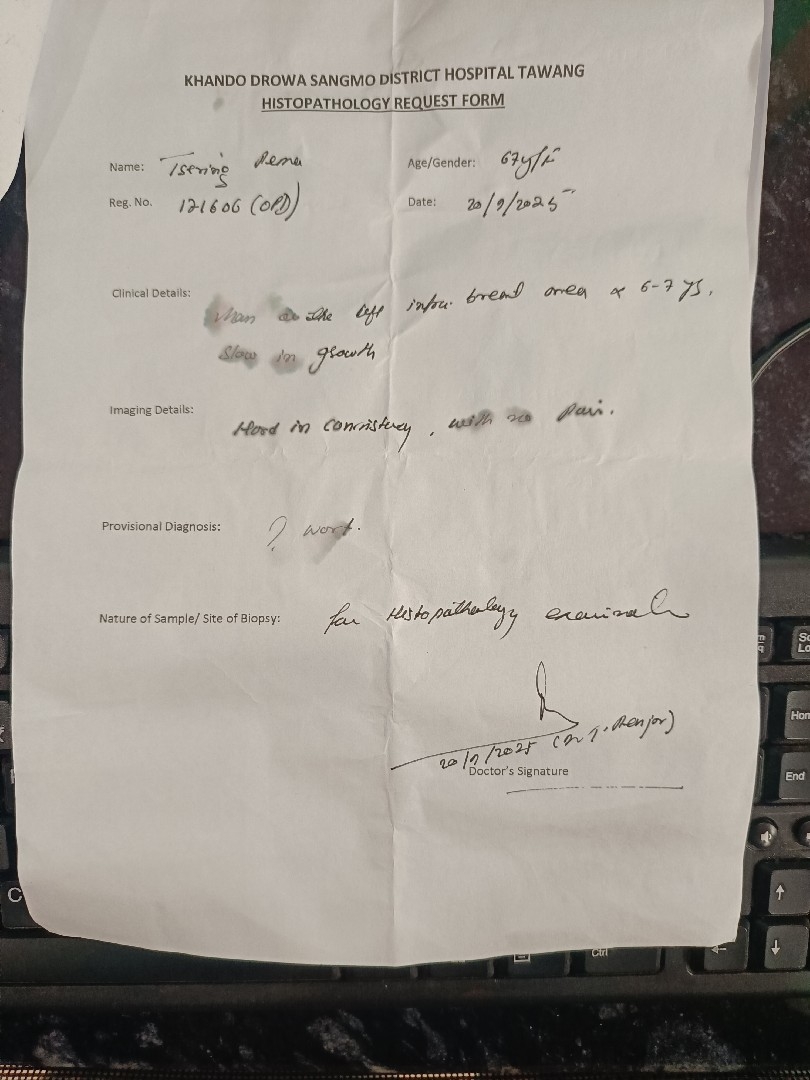 KHANDO DROWA SANGMO DISTRICT HOSPITAL TAWANG
HISTOPATHOLOGY REQUEST FORM
Name: Tsering Age/Gender: 67y/F
Reg. No. 121606 (OPD) Date: 20/9/2025
Clinical Details: left infra breast area 6-7 ys,
Slow in growth
Imaging Details: Hard in consistency, with no pain.
Provisional Diagnosis: ? wart.
Nature of Sample/ Site of Biopsy: for Histopathology
20/9/2025 (Dr T.
Doctor's Signature
Scr
Hom
End
Ctrl